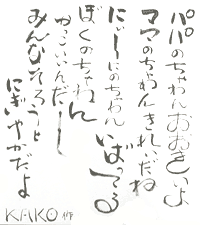 パパのちゃわんおおきいよ
ママのちゃわんきれいだね
にいーにのちゃわん
いばってる
ぼくのちゃわん
かっこいいんだー
みんなそろうと
にぎやかだよ
KAKO 作